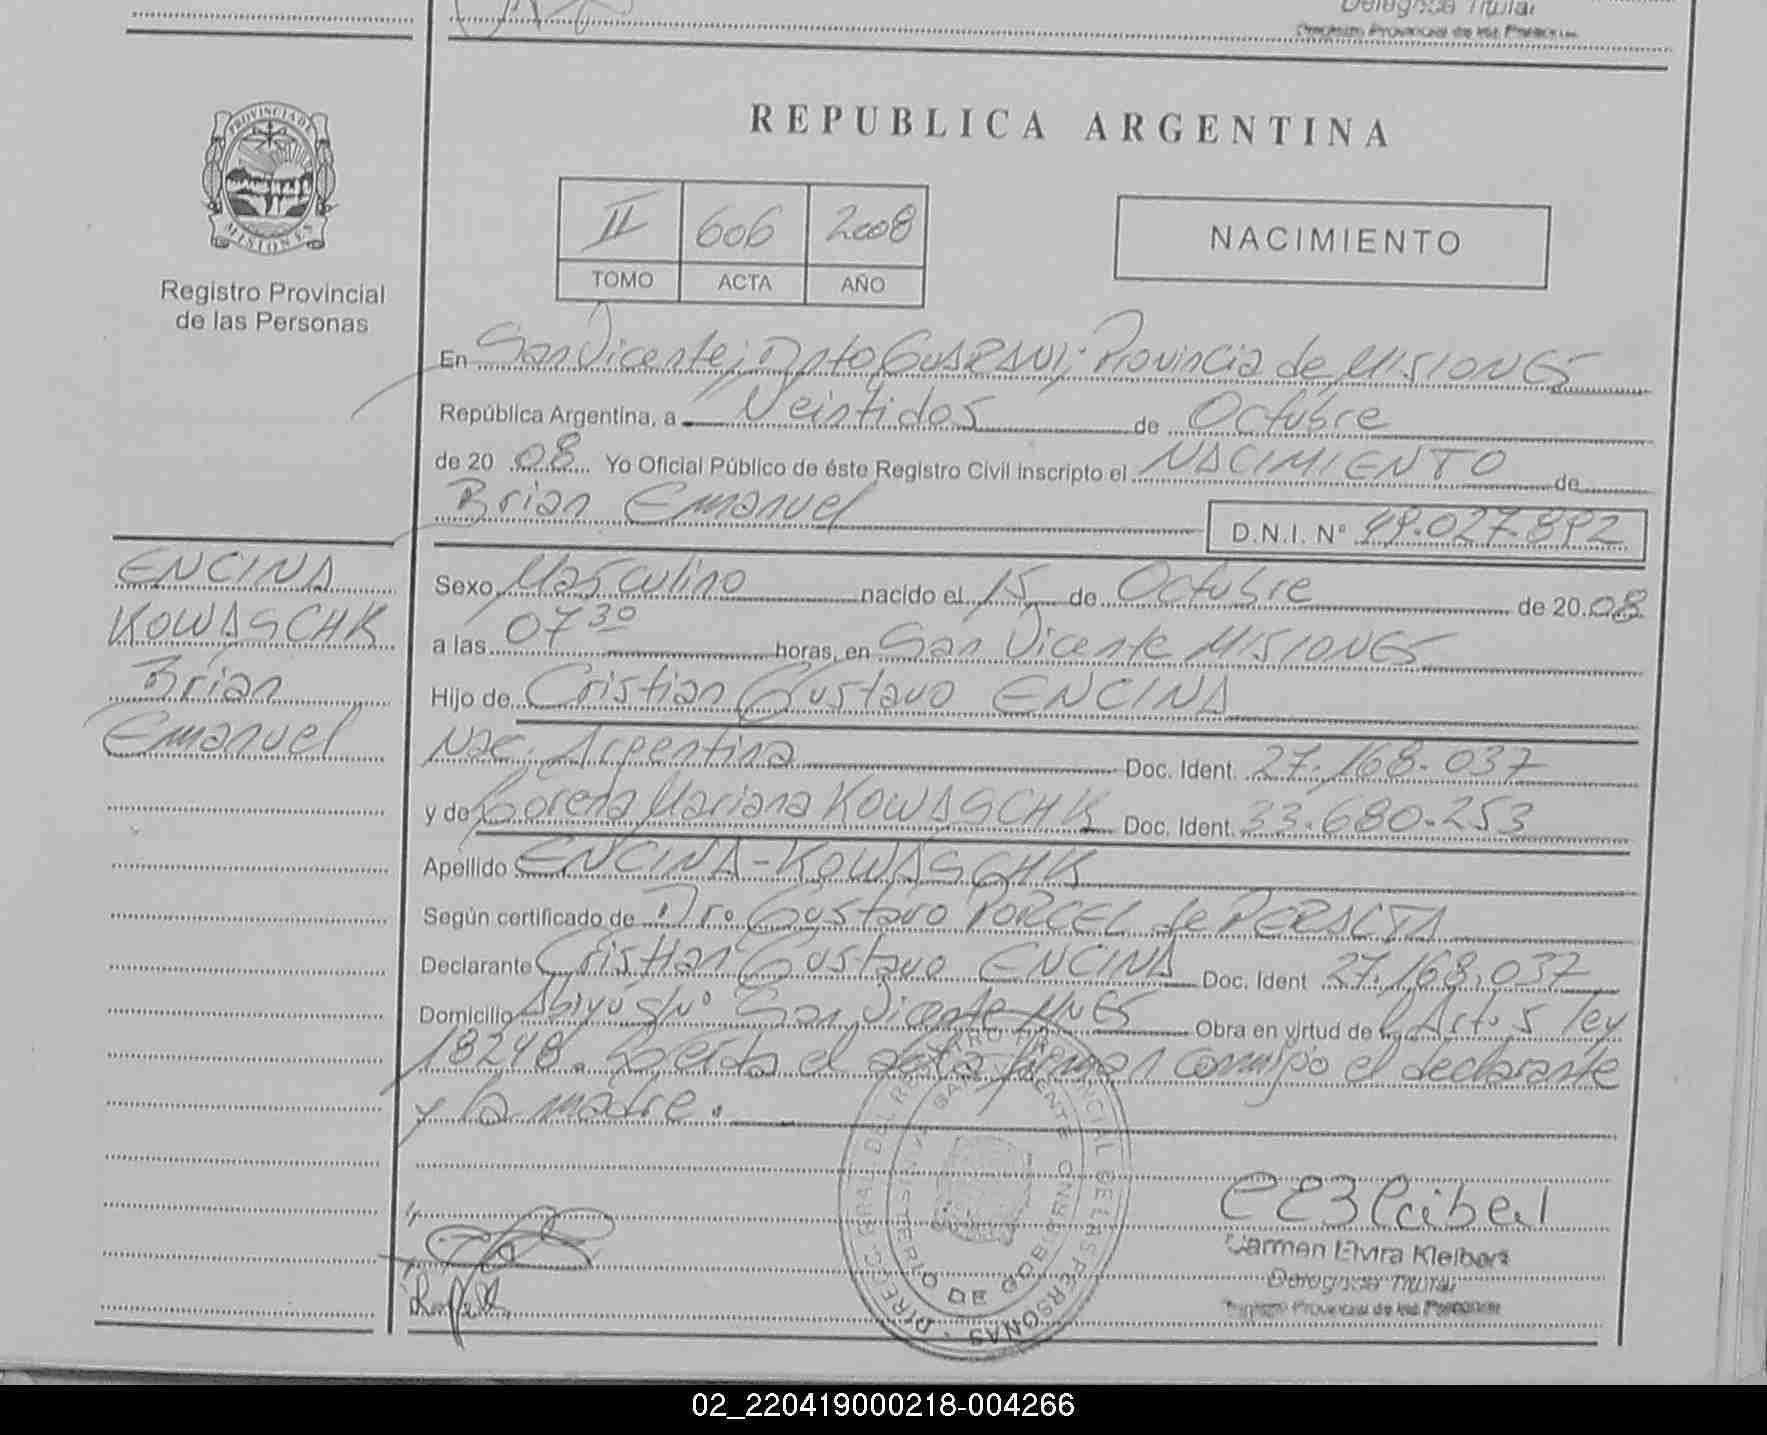 Delegada Titular
Registro Provincial de las Personas
PROVINCIA DE
MISIONES
Registro Provincial
de las Personas
REPUBLICA ARGENTINA
II 606 2008
TOMO ACTA AÑO
NACIMIENTO
En San Vicente; Dpto GUARANI; Provincia de MISIONES
República Argentina, a Veintidos de Octubre
de 20 08 Yo Oficial Público de éste Registro Civil inscripto el NACIMIENTO de
Brian Emanuel D.N.I. Nº 49.027.892
ENCINA
KOWASCHK
Brian
Emanuel
Sexo Masculino nacido el 15 de Octubre de 20 08
a las 07 30 horas, en San Vicente MISIONES
Hijo de Cristian Gustavo ENCINA
Nac. Argentina Doc. Ident. 27.168.037
y de Lorena Mariana KOWASCHK Doc. Ident. 33.680.253
Apellido ENCINA-KOWASCHK
Según certificado de Dr. Gustavo PORCEL de PERALTA
Declarante Cristian Gustavo ENCINA Doc. Ident 27.168.037
Domicilio S/Nº San Vicente MNES Obra en virtud de Art. 5 ley
18248. Leida el acta firman conmigo el declarante
y la madre.
DIREC. GRAL. DEL REGISTRO PROVINCIAL DE LAS PERSONAS
SAN VICENTE
MINISTERIO DE GOBIERNO
Carmen Elvira Kleibert
Delegada Titular
Registro Provincial de las Personas
02_220419000218-004266